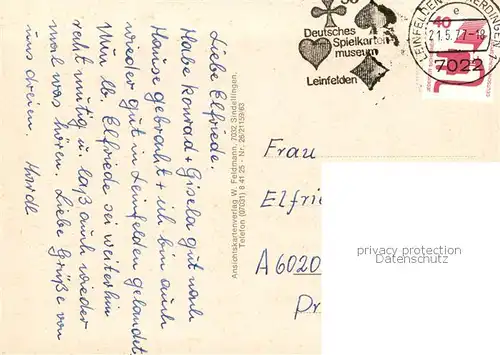 Liebe Elfriede.
Habe Konrad + Gisela gut nach
Hause gebracht + ich bin auch
wieder gut in Leinfelden gelandet.
Nun lb. Elfriede sei weiterhin
recht mutig u. laß auch wieder
mal was hören. Liebe Grüße von
uns dreien.
Ansichtskartenverlag W. Feldmann, 7032 Sindelfingen,
Telefon (07031) 8 41 25 - Nr. 26/21159/63
Deutsches
Spielkarten
museum
Leinfelden
LEINFELDEN-ECHTERDINGEN 1
e
21.5.77-18
7022
40
Frau
Elfrie
A6020
privacy protection
by AKPool.de